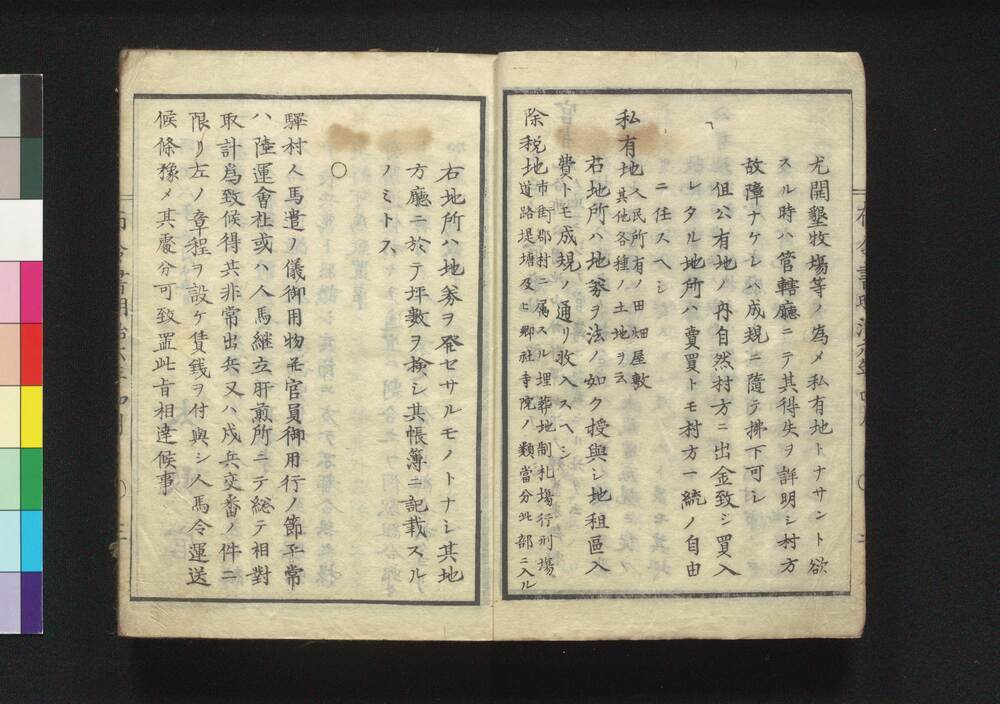 尤開墾牧場等ノ為メ私有地トナサント欲
スル時ハ管轄廳ニテ其得失ヲ詳明シ村方
故障ナケレハ成規ニ隨テ拂下可シ
但公有地ノ内自然村方ニ出金致シ買入
レタル地所ハ賣買トモ村方一統ノ自由
ニ任スヘシ
私有地 人民所有ノ田畑屋敷
其他各種ノ土地ヲ云
右地所ハ地劵ヲ法ノ如ク授與シ地租區入
費トモ成規ノ通リ收入スヘシ
除税地 市街郡村ニ屬スル埋葬地制札場行刑場
道路堤塘及ヒ郷社寺院ノ類當分此部ニ入ル
右地所ハ地劵ヲ發セサルモノトナシ其地
方廳ニ於テ坪數ヲ檢シ其帳簿ニ記載スル
ノミトス
〇
驛村人馬遣ノ儀御用物並官員御用行ノ節平常
ハ陸運會社或ハ人馬継立肝煎所ニテ総テ相對
取計爲致候得共非常出兵又ハ戍兵交番ノ件ニ
限リ左ノ章程ヲ設ケ賃銭ヲ付與シ人馬令運送
候條豫メ其處分可致置此旨相達候事